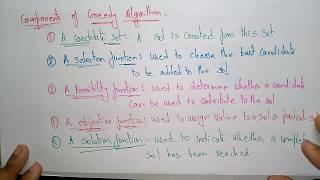 Component of Greedy Algorithm:-
① A candidate set:- A sol is created from this set
② A selection function:- used to choose the best candidate
to be added to the sol
③ A feasibility function:- used to determine whether a candidate
can be used to contribute to the sol
④ A objective function:- used to assign value to a sol or partial sol
⑤ A solution function:- used to indicate whether a complete
sol has been reached.